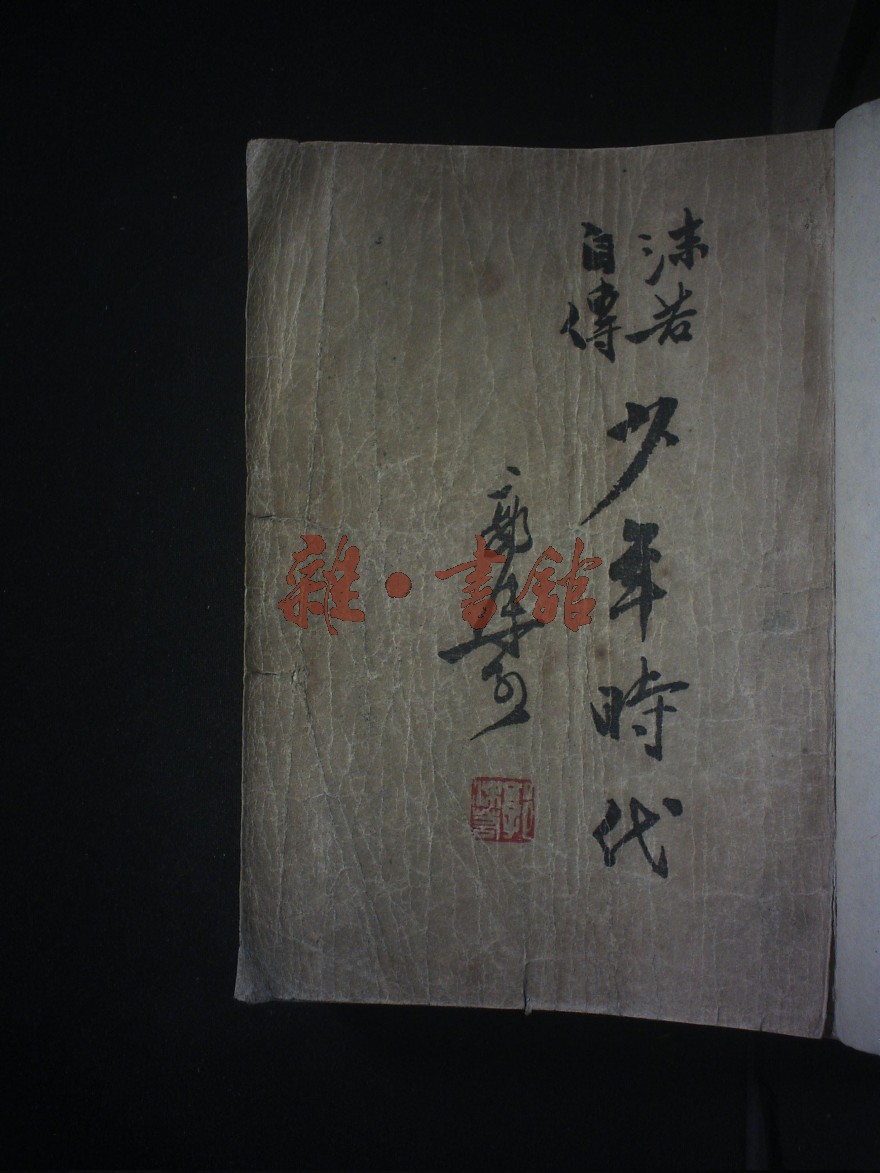 沫若
自傳
少年時代
郭沫若
雜·書館
郭沫若